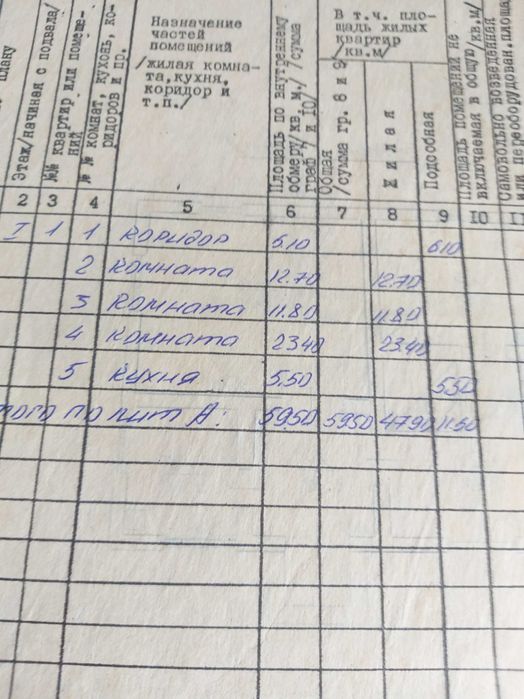 плану
Этаж/начиная с подвала/
№№ квартир или помеще-
ний
№ № комнат, кухонь, ко-
ридоров и пр.
Назначение
частей
помещений
/жилая комна-
та,кухня,
коридор и
т.п./
Площадь по внутреннему
обмеру/кв. м./ /сумма
граф 7 и 10/
В т.ч. пло-
щадь жилых
квартир
/кв.м/
Общая
/сумма гр. 8 и 9/
Жилая
Подсобная
Площадь помещений не
включаемая в общую/кв.м/
Самовольно возведенная
или переоборудован.площа
2 3 4 5 6 7 8 9 10 11
I 1 1 коридор 6.10 6.10
2 комната 12.70 12.70
3 комната 11.80 11.80
4 комната 23.40 23.40
5 кухня 5.50 5.50
того по лит А: 59.50 59.50 47.90 11.60